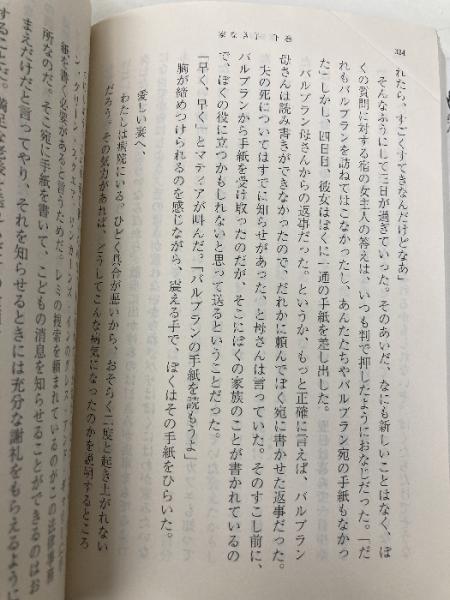 324
れたら、すごくすてきなんだけどなあ」
そんなふうにして三日が過ぎていった。そのあいだ、なにも新しいことはなく、ぼ
くの質問に対する宿の女主人の答えは、いつも判で押したようにおなじだった。「だ
れもバルブランを訪ねてはこなかったし、あんたたちやバルブラン宛の手紙もなかっ
た」しかし、四日目、彼女はぼくに一通の手紙を差し出した。
バルブラン母さんからの返事だった。というか、もっと正確に言えば、バルブラン
母さんは読み書きができなかったので、だれかに頼んでぼく宛に書かせた返事だった。
夫の死についてはすでに知らせがあった、と母さんは言っていた。そのすこし前に、
バルブランから手紙を受け取ったのだが、そこにぼくの家族のことが書かれているの
で、ぼくの役に立つかもしれないと思って送るということだった。
「早く、早く」とマティアが叫んだ。「バルブランの手紙を読もうよ」
胸が締めつけられるのを感じながら、震える手で、ぼくはその手紙をひらいた。
愛しい妻へ、
わたしは病院にいる。ひどく具合が悪いから、おそらく二度と起き上がれない
だろう。その気力があれば、どうしてこんな病気になったのかを説明するところ
紙を書く必要があると言うためだ。レミの捜索を頼まれているのがこの法律事務
所なのだ。そこ宛に手紙を書いて、こどもの消息を知らせることができるのはお
まえだけだと言ってやり、それを知らせるときには充分な謝礼をもらえるように